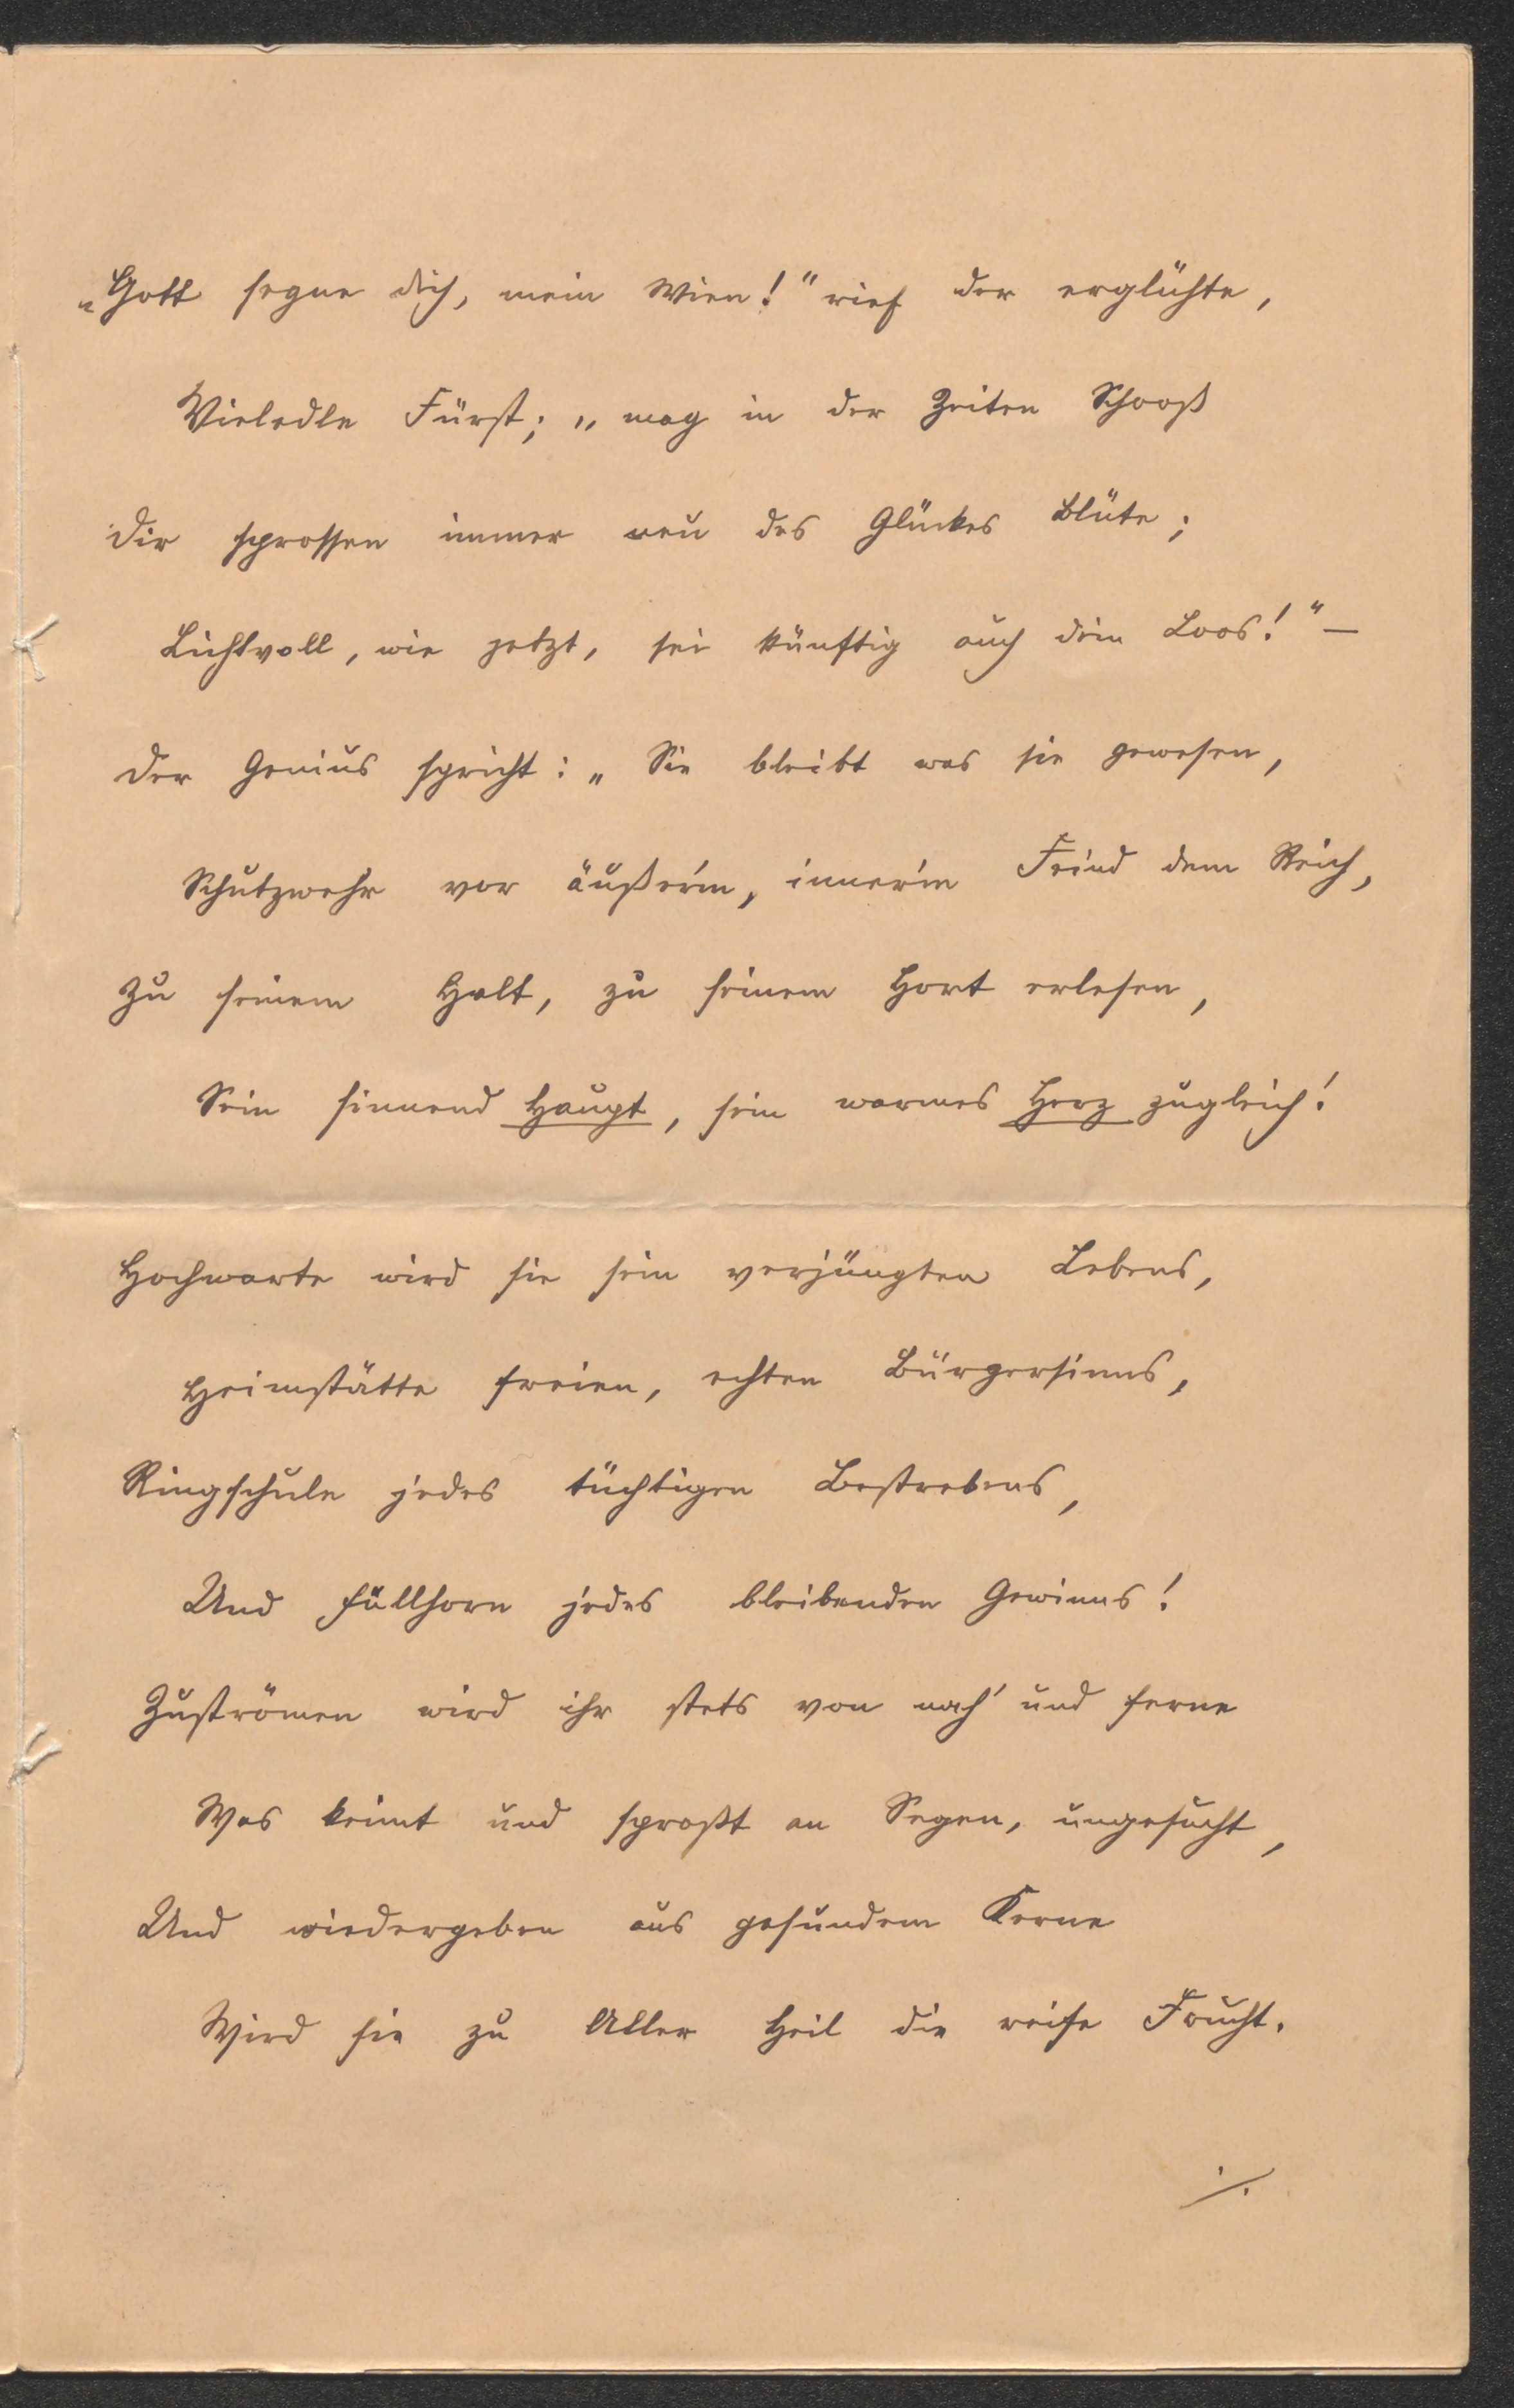 „Gott segne dich, mein Wien!“ rief der erglühte,
Vieledle Fürst; „mag in der Zeiten Schooß
Dir sprossen immer neu des Glückes Blüte;
Lichtvoll, wie jetzt, sei künftig auch dein Loos!“ —
Der Genius spricht: „Sie bleibt was sie gewesen,
Schutzwehr vor äußer'm, inner'm Feind dem Reich,
Zu seinem Halt, zu seinem Hort erlesen,
Sein sinnend Haupt, sein warmes Herz zugleich!
Hochwarte wird sie sein verjüngten Lebens,
Heimstätte freien, echten Bürgersinns,
Ringschule jedes tüchtigen Bestrebens,
Und Füllhorn jedes bleibenden Gewinns!
Zuströmen wird ihr stets von nah' und ferne
Was keimt und sproßt an Segen, ungesucht,
Und wiedergeben aus gesundem Kerne
Wird sie zu Aller Heil die reife Frucht.
./.